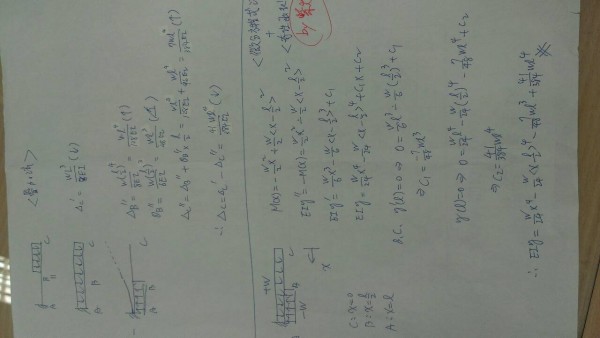 <疊加法>
A B C
Δc' = wl⁴/8EI (↓)
A B C
ΔB'' = w(l/2)⁴/8EI = wl⁴/128EI (↑)
θB'' = w(l/2)³/6EI = wl³/48EI
A B C
Δc'' = ΔB'' + θB'' × l/2 = wl⁴/128EI + wl⁴/96EI = 7wl⁴/384EI (↑)
∴ Δc = Δc' - Δc'' = 41wl⁴/384EI (↓)
+W
-W
B C
x
C: x=0
B: x=l/2
A: x=l
+
by
M(x) = -w/2 x² + w/2 <x - l/2>²
EIy'' = -M(x) = w/2 x² - w/2 <x - l/2>²
EIy' = w/6 x³ - w/6 <x - l/2>³ + C₁
EIy = w/24 x⁴ - w/24 <x - l/2>⁴ + C₁x + C₂
B.C. y'(l)=0 ⇒ 0 = w/6 l³ - w/6 (l/2)³ + C₁
⇒ C₁ = -7/48 wl³
y(l)=0 ⇒ 0 = w/24 l⁴ - w/24 (l/2)⁴ - 7/48 wl⁴ + C₂
⇒ C₂ = 41/384 wl⁴
∴ EIy = w/24 x⁴ - w/24 <x - l/2>⁴ - 7/48 wl³x + 41/384 wl⁴